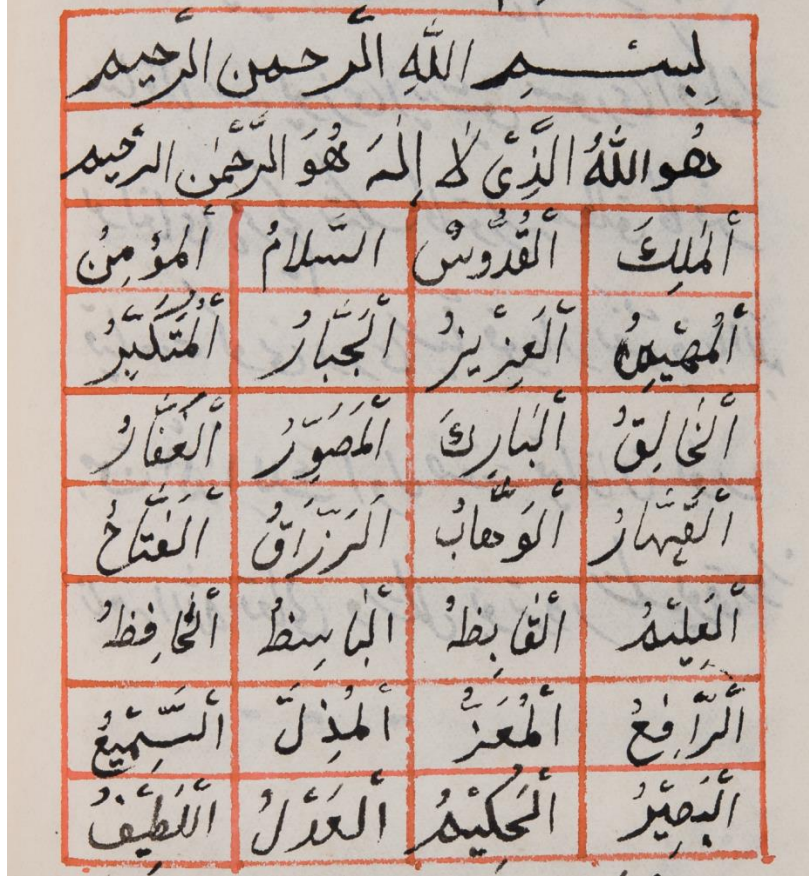 بِسْمِ اللهِ الرَّحمن الرَّحيم
هُو اللهُ الَّذِى لَا إِلٰهَ هُوَ الرَّحْمٰن الرَّحيم
أَلمَلِكَ أَلقُدُّوسُ السَّلامُ أَلمؤمِنُ
أَلمُهَيْمِنُ أَلعَزِيزُ أَلجَبَّارُ أَلمُتَكَبِّرُ
أَلخَالِقُ أَلبَارِكَ أَلمَصَوِّرُ أَلغَفَّارُ
أَلقَهَّارُ أَلوَهَّابُ أَلرَزَّاقُ أَلفَتَّاحُ
أَلعَلِيْمُ أَلقَابِظُ أَلبَاسِظُ أَلخَافِظُ
أَلرَّافِعُ أَلمُعَزُّ أَلمُذِلَّ أَلسَّمِيْعُ
أَلبَصِيْرُ أَلحُكِيْمُ أَلعَدْلُ أَللَطِيْفُ